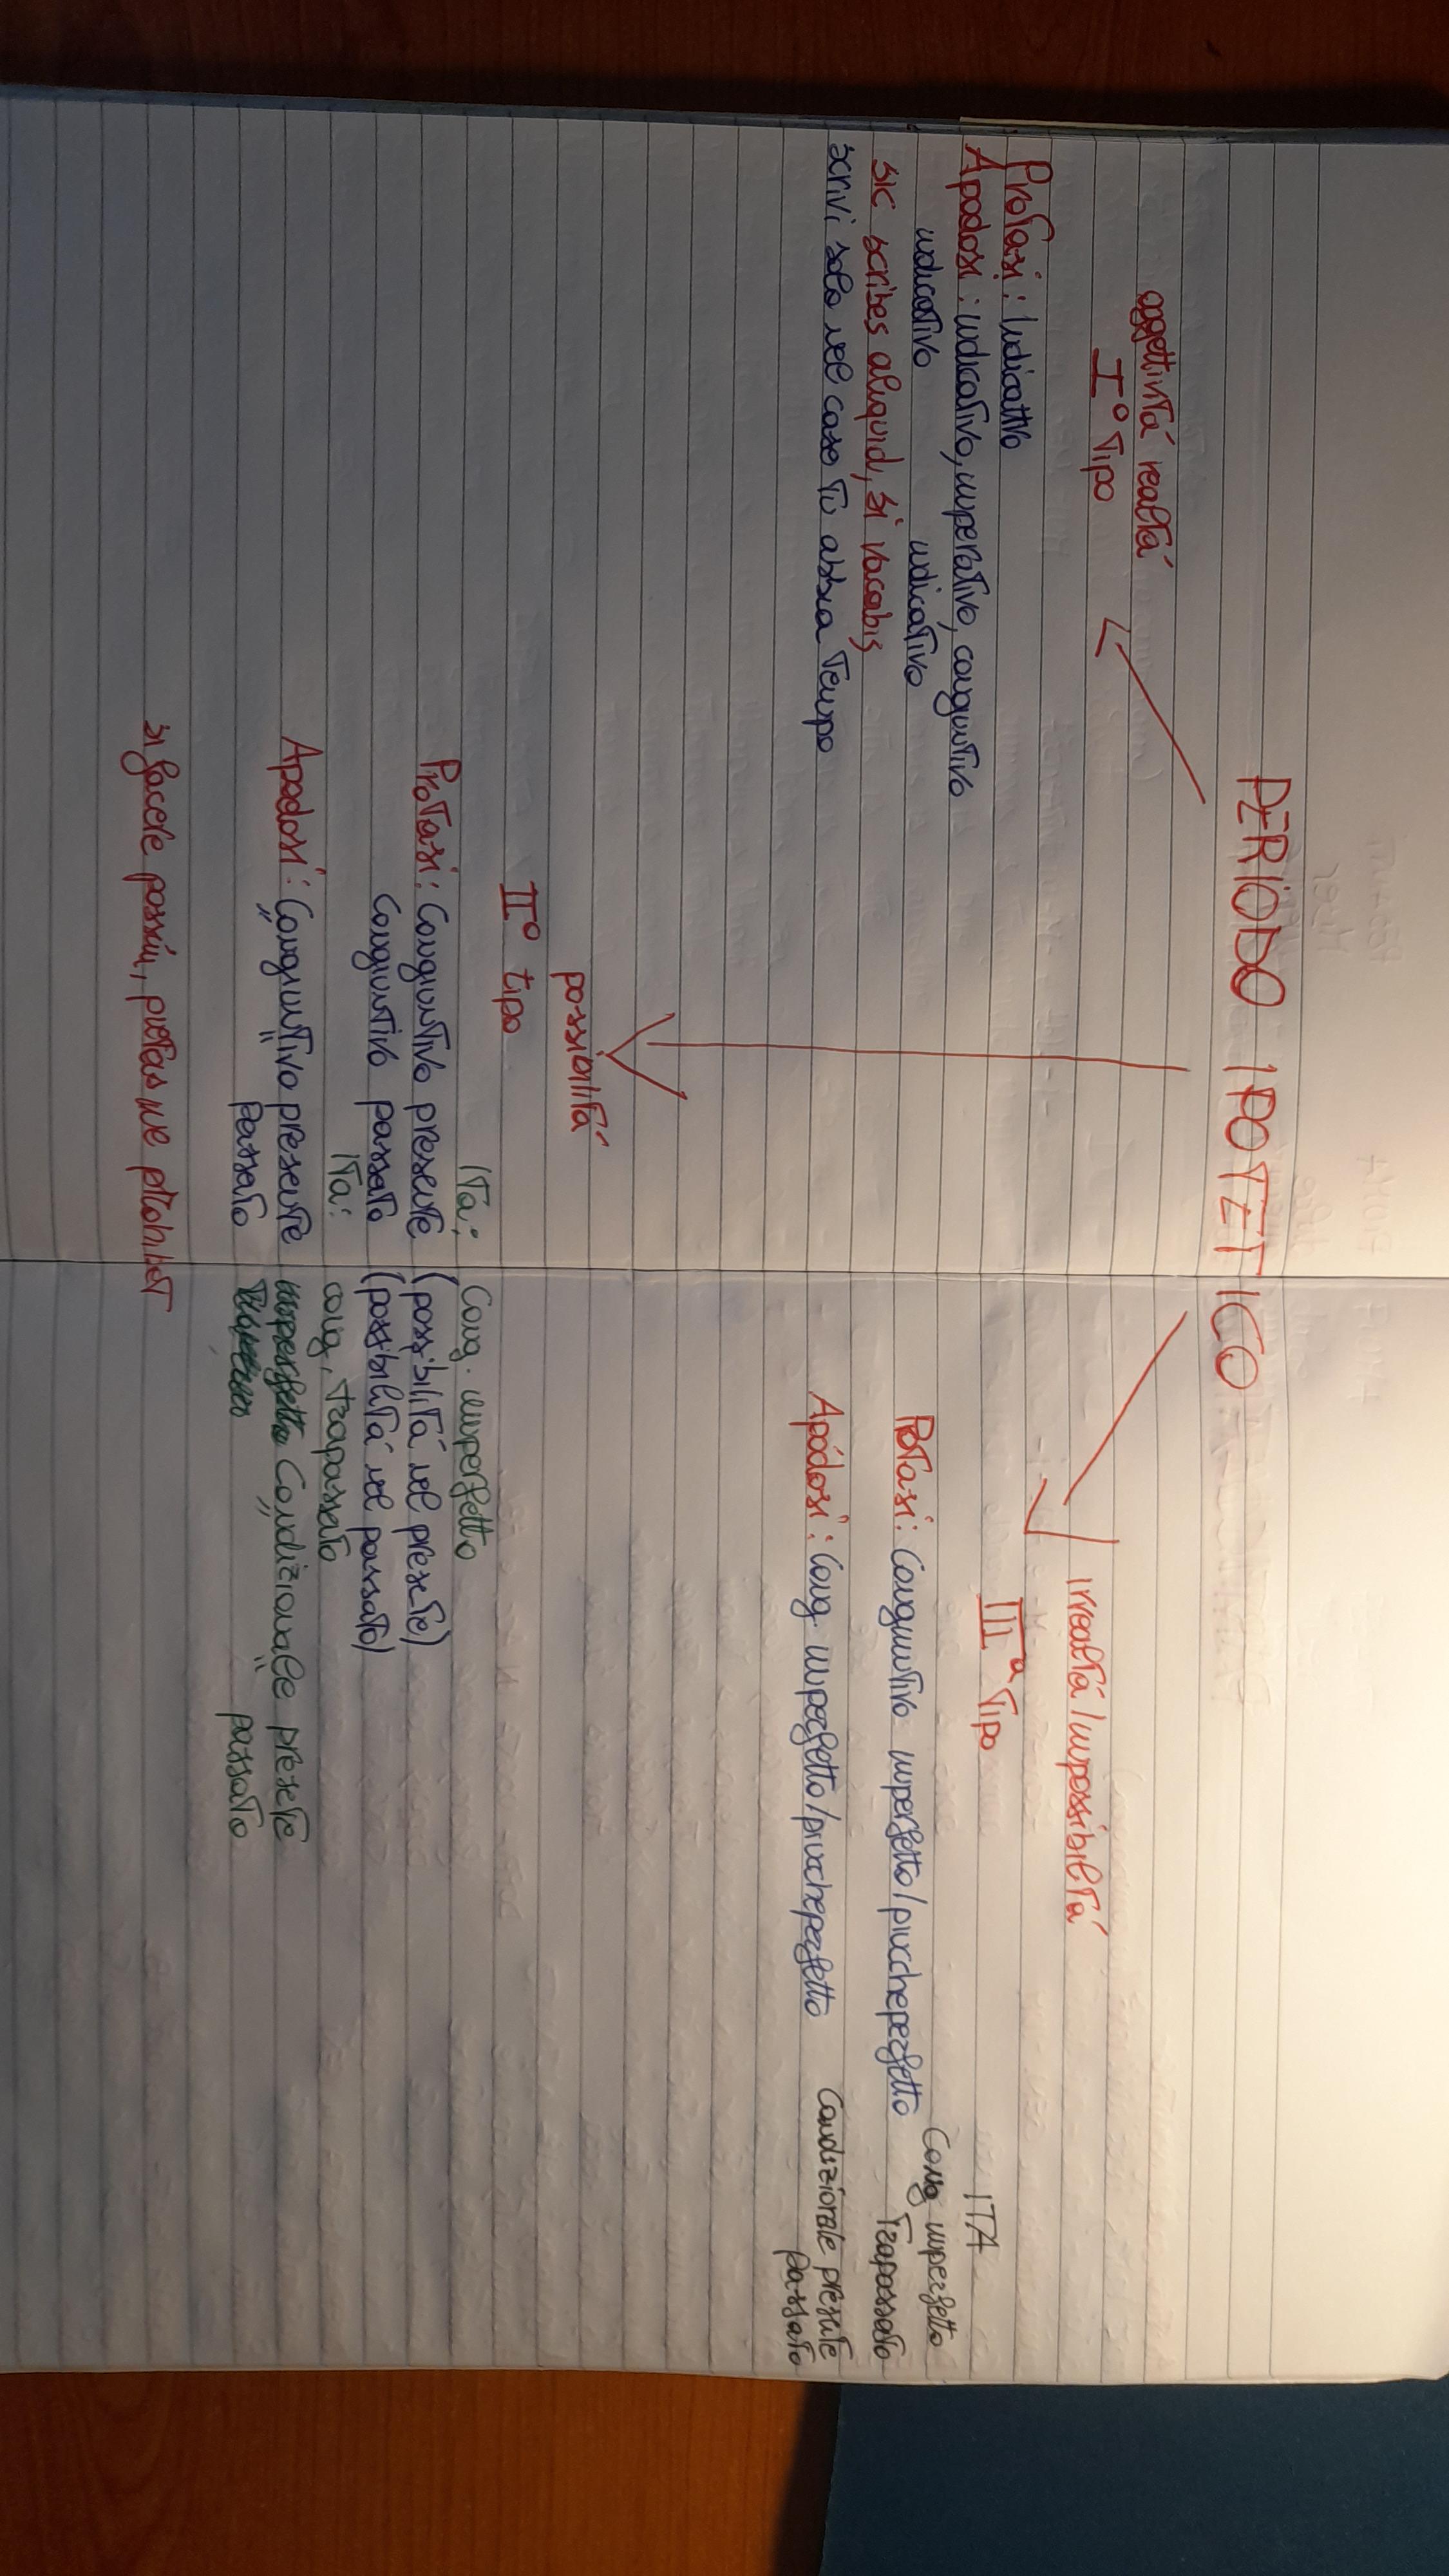 PERIODO IPOTETICO
oggettività realtà
I° Tipo
Protasi: Indicativo
Apodosi: indicativo, imperativo, congiuntivo
indicativo indicativo
sic scribes aliquid, si vacabis
scrivi solo nel caso tu abbia tempo
possibilità
II° tipo
ITA: Cong. imperfetto
Protasi: Congiuntivo presente (possibilità nel presete)
Congiuntivo passato (possibilità nel passato)
ITA: cong. trapassato
Apodosi: Congiuntivo presente Condizionale presete
" " passato " " passato
si facere possim, pietas me prohibet
irrealtà/impossibilità
III° Tipo
ITA
Cong imperfetto
Protasi: Congiuntivo imperfetto/piuccheperfetto Trapassato
Apódosi: Cong. imperfetto/piuccheperfetto Condizionale presente
passato